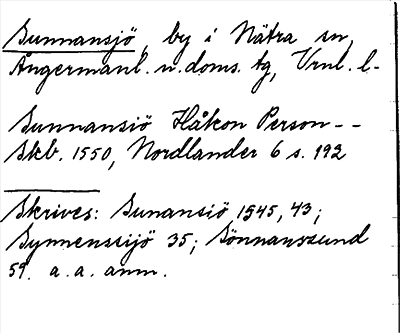 Sunnansjö, by i Nätra sn,
Ångermanl. n. doms. tg, Vrnl. l-
Sunnansiö Håkon Person--
Skb. 1550, Nordlander 6 s. 192
Skrives: Sunansiö 1545, 43;
Synnenssijö 35; Sönnanssund
59. a. a. anm.